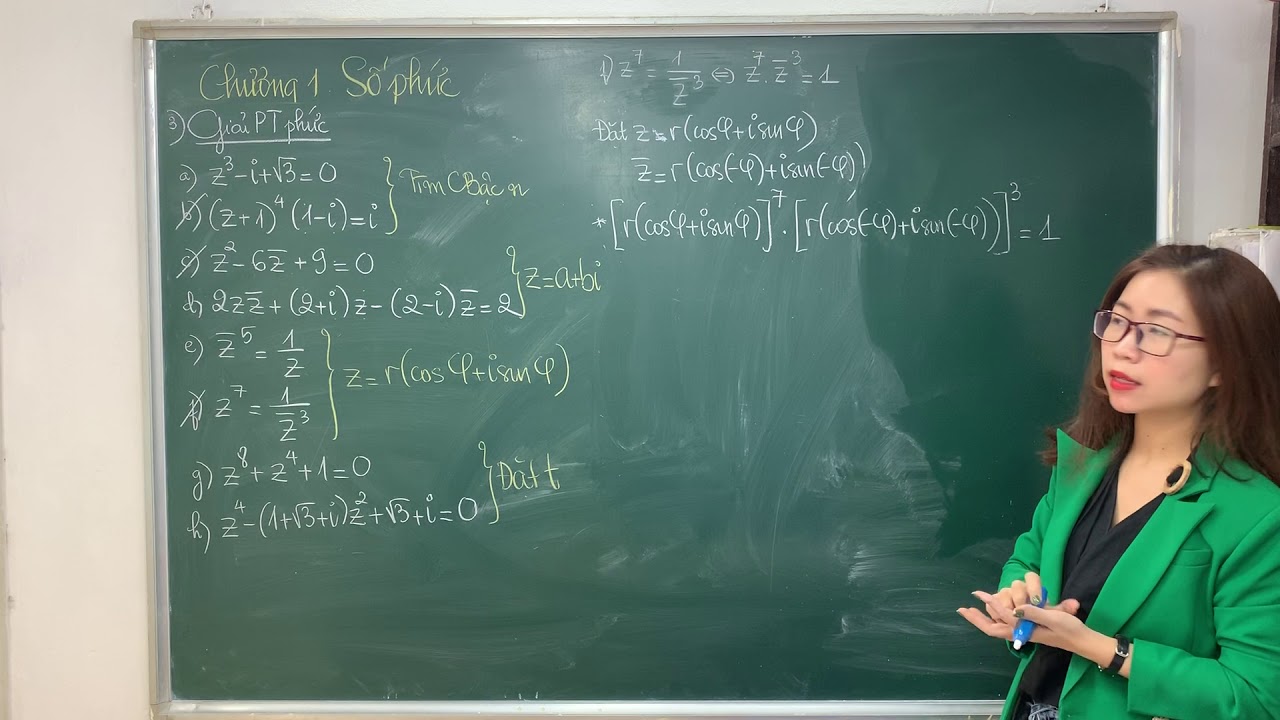 Chương 1 Số phức
3) Giải PT phức
a) z³ - i + √3 = 0
b) (z+1)⁴ (1-i) = i
} Tìm CBậc n
c) z² - 6z̅ + 9 = 0
d) 2zz̅ + (2+i)z - (2-i)z̅ = 2
} z = a+bi
e) z̅⁵ = 1/z
f) z⁷ = 1/z̅³
} z = r(cosφ + isinφ)
g) z⁸ + z⁴ + 1 = 0
h) z⁴ - (1+√3+i)z² + √3 + i = 0
} Đặt t
f) z⁷ = 1/z̅³ ⇔ z⁷. z̅³ = 1
Đặt z = r(cosφ + isinφ)
z̅ = r(cos(-φ) + isin(-φ))
* [r(cosφ + isinφ)]⁷ . [r(cos(-φ) + isin(-φ))]³ = 1